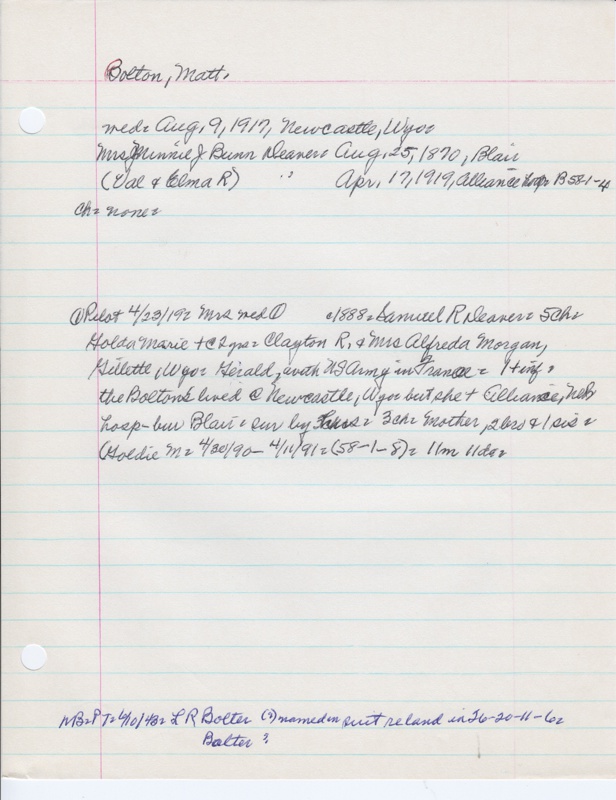 Bolton, Matt.
med= Aug. 9, 1917, Newcastle, Wyo=
Mrs Minnie J Bunn Deaver= Aug. 25, 1870, Blair
(Val & Elma R) Apr. 17, 1919, Alliance hosp= B 58-1-4
ch= none=
① Pilot 4/23/19= Mrs med ① c1888= Samuel R Deaver= 5ch=
Golda Marie + @ 2 yrs= Clayton R, & Mrs Alfreda Morgan,
Gillette, Wyo= Gerald, with US Army in France= 1 + inf=
the Boltons lived @ Newcastle, Wyo but she + Alliance, Neb
hosp-bur Blair= sur by = 3ch= Mother, 2 bro & 1 sis=
(Goldie M= 4/30/90- 4/11/91= (58-1-8)= 11m 11da=
NB=PT= 6/10/43= L R Bolter (?) named in suit re land in 26-20-11-6=
Balter ?